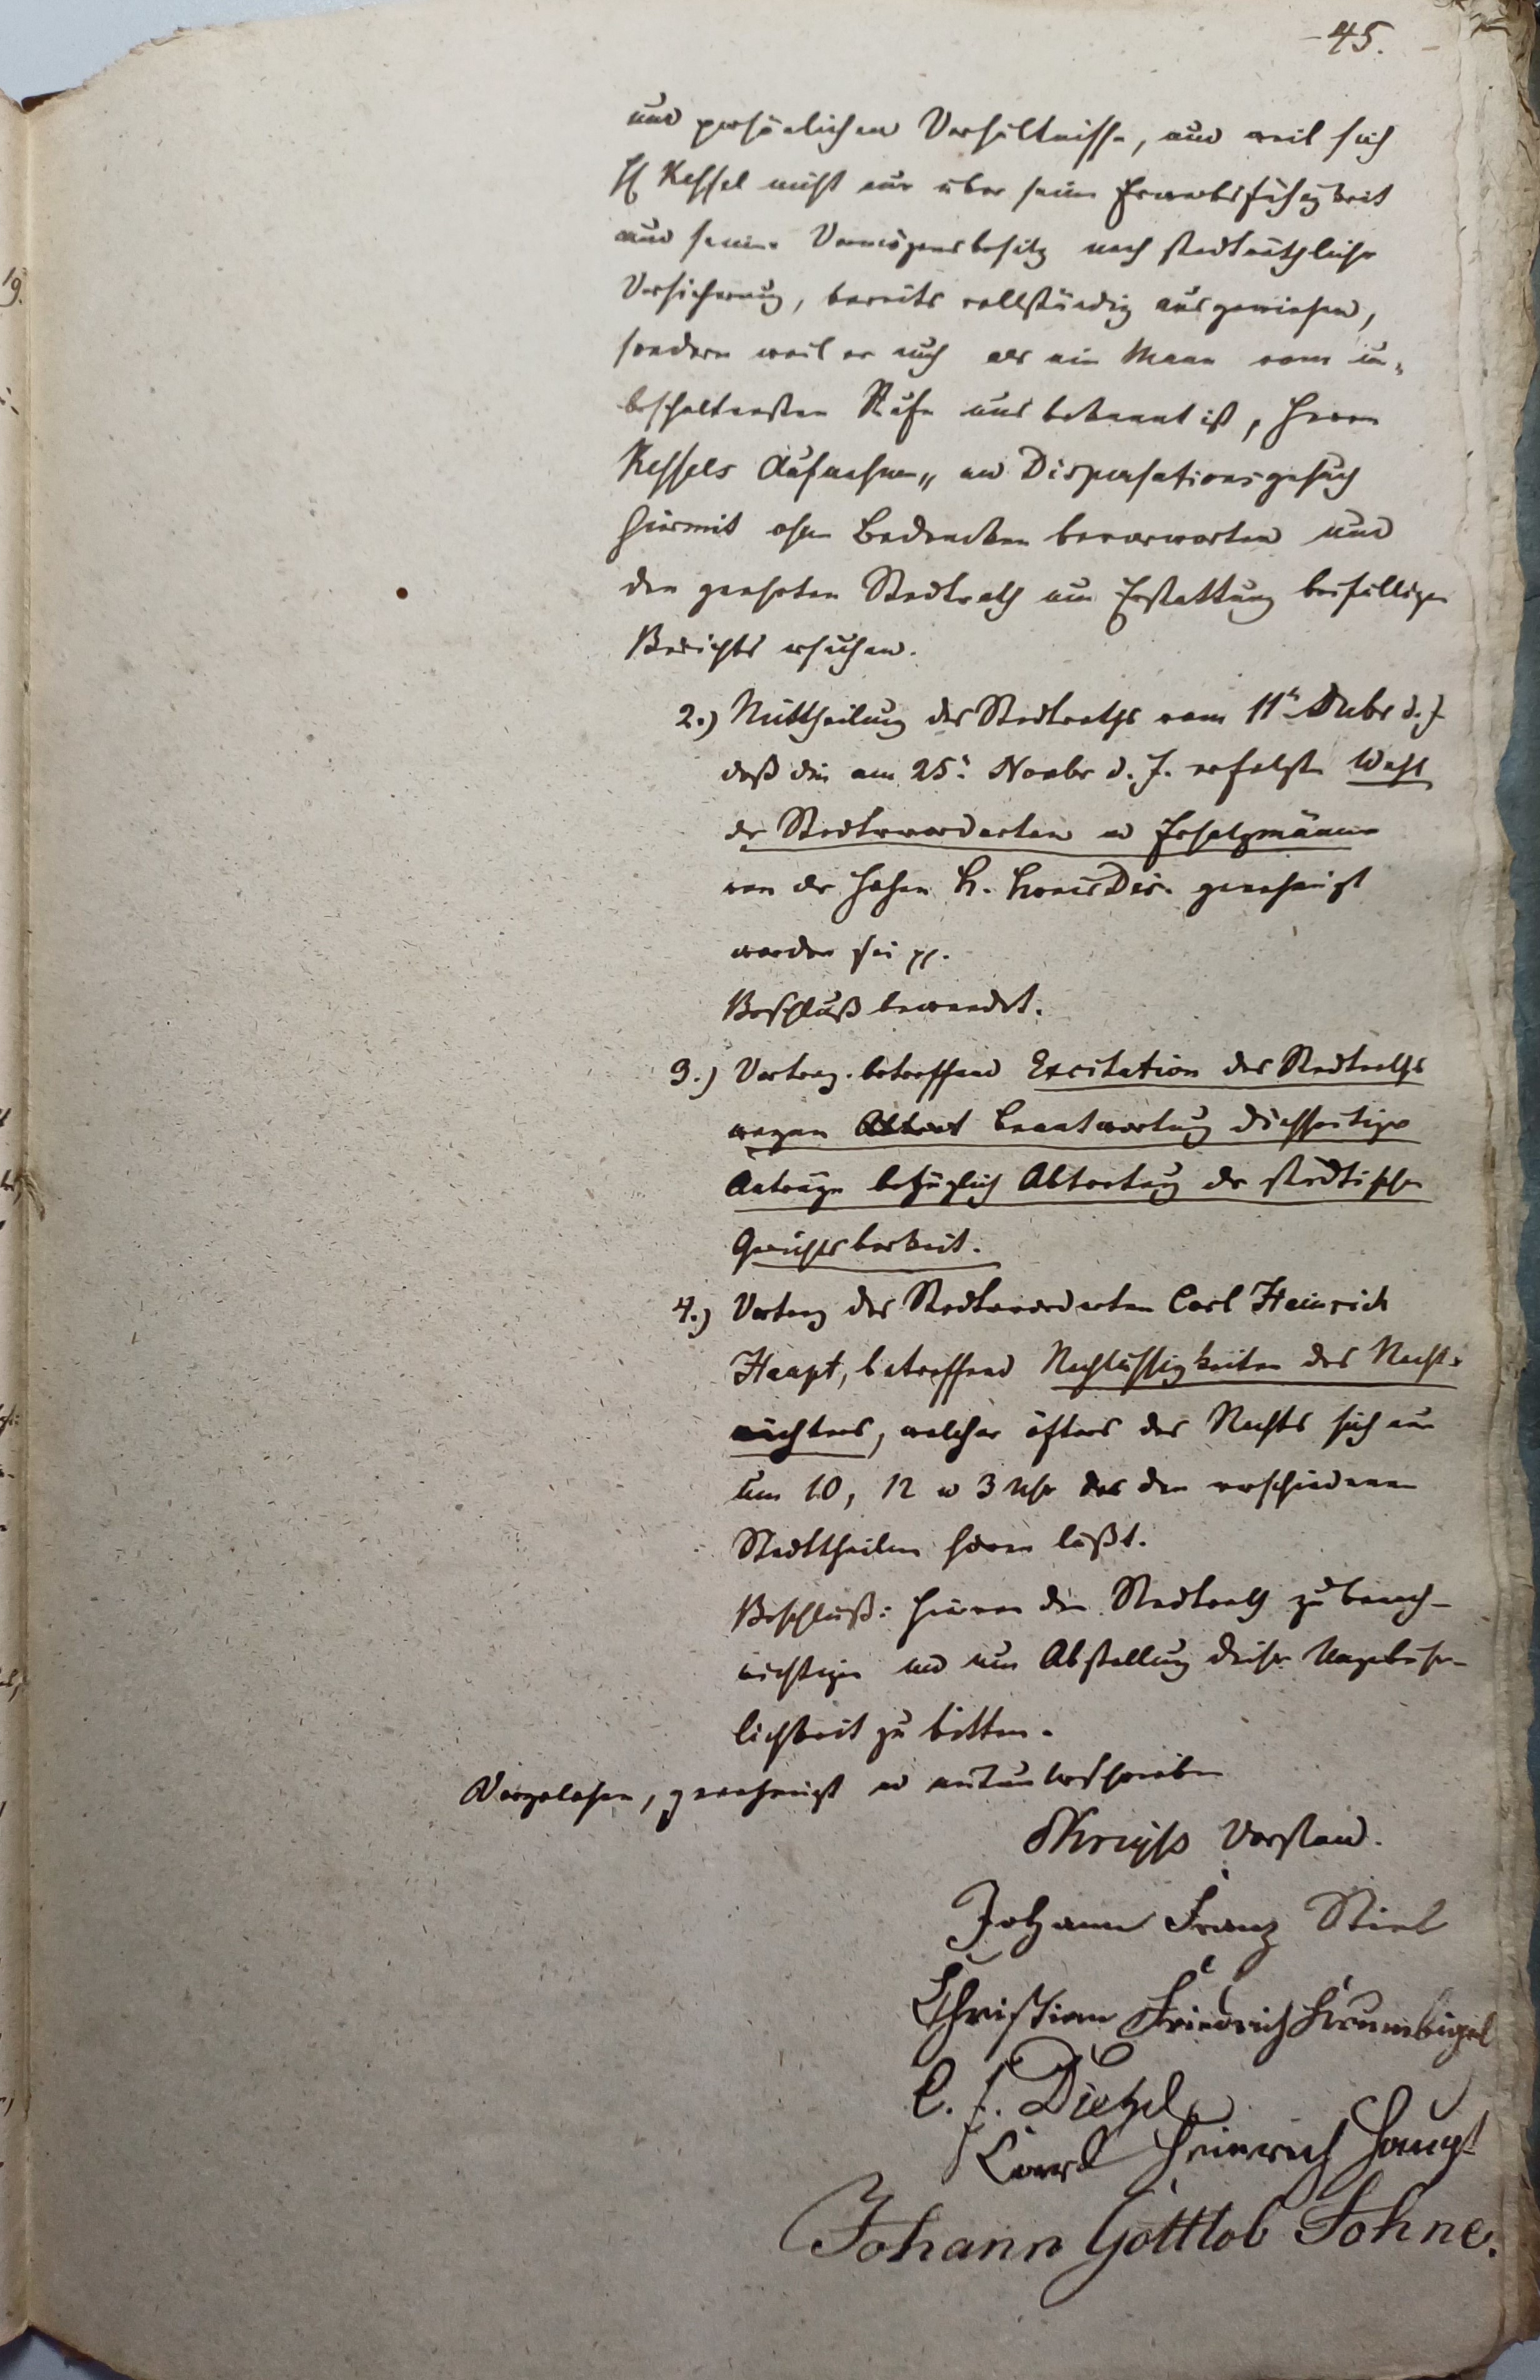 45.
und persönlichen Verhältnisse, und weil sich
H Kessel nicht nur über seine Erwerbsfähigkeit
und seinen Vermögensbesitz nach stadträthlicher
Versicherung, bereits vollständig ausgewiesen,
sondern weil er auch als ein Mann vom un„
bescholtensten Rufe uns bekannt ist, Herrn
Kessels Aufnahme„ und Dispensationsgesuch
hiermit ohne Bedenken bevorworten und
den geehrten Stadtrath um Erstattung beifälligen
Berichts ersuchen.
2.) Mittheilung des Stadtraths vom 11n Dzbr d. J.
daß die am 25. Novbr d. J. erfolgte Wahl
der Stadtverordneten u Ersatzmänner
von der hohen K. KreisDir. genehmigt
worden sei pp.
Beschluß bewendet.
3.) Vortrag betreffend Excitation des Stadtraths
wegen Beantwortung diesseitiger
Anträge bezüglich Abtretung der städtischen
Gerichtsbarkeit.
4.) Vortrag des Stadtverordneten Carl Heinrich
Haupt, betreffend Nachlässigkeiten des Nacht-
wächters, welcher öfters des Nachts sich nur
um 10, 12 u 3 Uhr in den verschiedenen
Stadttheilen hören läßt.
Beschluß: hiervon den Stadtrath zu benach-
richtigen und um Abstellung dieser Ungebühr-
lichkeit zu bitten.
Vorgelesen, genehmigt u mitunterschrieben
Vorstand.
Johann Franz Stiel
Christian Friedrich Krumbigel
C. F. Dietzel
Carl Heinrich Haupt
Johann Gottlob Fohne.